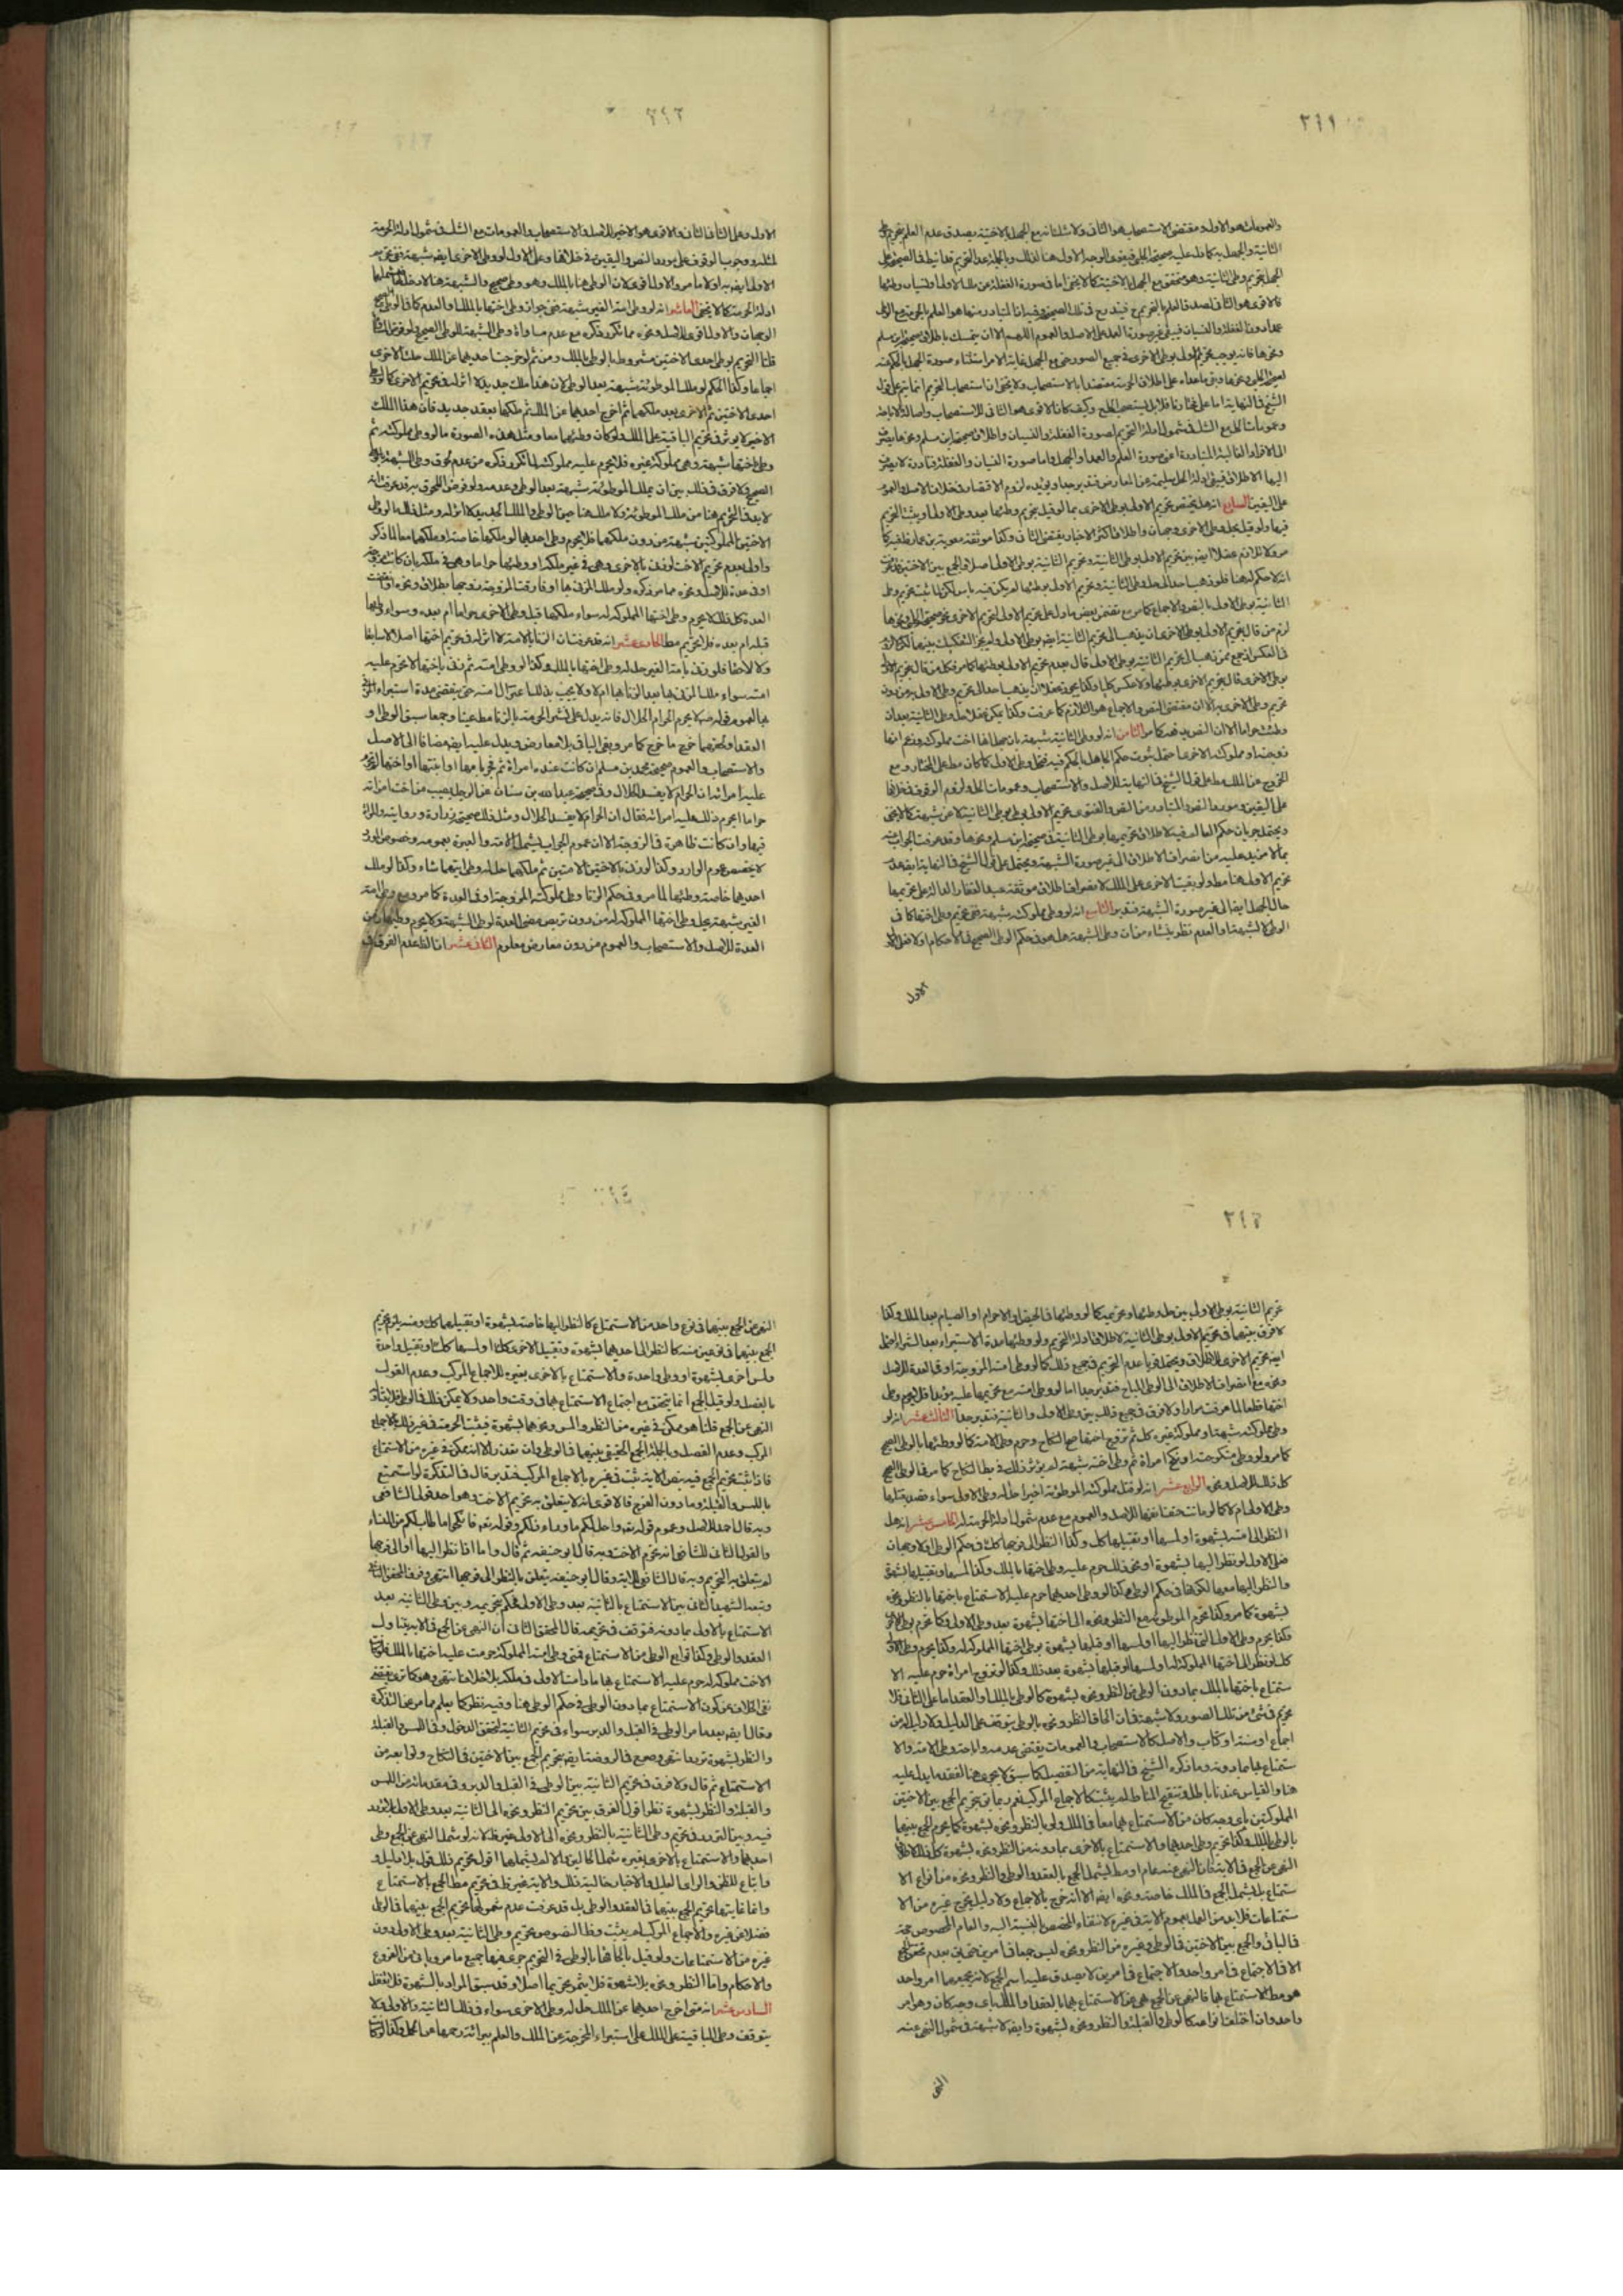 ٢٩١
والعمومات هو الاول ومقتضى الاستصحاب هو الثانى ولا شك انه مع الجهل بالاختية يصدق عدم العلم
الثانية والجهل به
الجهل بتحريم وطى الثانية وهو متحقق مع الجهل بالاختية كما لا يخفى اما فى صورة الغفلة عن ملك الاولى او نسيان وطئها
فالاقوى هو الثانى لصدق العلم بالتحريم
عمدا دون الغفلة والنسيان فيبقى غير صورة العمد على الاصل والعموم اللهم الا ان يتمسك باطلاق صحيحة ابن مسلم
ونحوها فانه يوجب تحريم الاولى بوطى الاخرى فى جميع الصور حتى مع الجهل غاية الامر استثناء صورة الجهل
الشيخ فى النهاية اما على مختارنا فلا بل يستصحب الحل وكيف كان الاقوى هو الثانى للاستصحاب واصالة الاباحة
وعمومات الحل مع الشك فى شمول ادلة التحريم لصورة الغفلة والنسيان واطلاق صحيحة ابن مسلم ونحوها ينصرف
الى الافراد الغالبة المتبادرة اعنى صورة العلم والعمد او الجهل واما صورة النسيان والغفلة فنادرة لا ينصرف
اليها الاطلاق فيبقى ادلة الحل سليمة عن المعارض فتدبر جدا ويؤيده لزوم الاقتصار فى خلاف الاصل والعموم
على اليقين السابع انه هل يختص تحريم الاولى بوطى الاخرى بما لو قيل بتحريم وطئها بعد وطى الاولى او يثبت التحريم
فيها ولو قيل بحل وطى الاخرى وجهان واطلاق اكثر الاخبار يقتضى الثانى وكذا موثقة معوية بن عمار
مر ولا تلازم عقلا ايضا بين تحريم الاولى بوطى الثانية وتحريم الثانية بوطى الاولى اصلا والجمع بين الاختين
الثانية بوطى الاولى بالنص والاجماع كما مر مع تضمن بعض ما دل على تحريم الاولى لتحريم الاخرى
لزم من قال بتحريم الاولى بوطى الاخرى ان يذهب الى تحريم الثانية ايضا بوطى الاولى ولم يجز التفكيك بينهما
فى العكس اذ جمع ممن ذهب الى تحريم الثانية بوطى الاولى قال بعدم تحريم الاولى بوطئها كما مر فكل من قال بتحريم الاولى
بوطى الاخرى قال بتحريم الاخرى بوطئها ولا عكس كليا
تحريم وطى الاخرى به الا ان مقتضى النص والاجماع هو التلازم كما عرفت
الثامن انه لو وطى الثانية بشبهة بان جهل انها اخت مملوكته وزعم انها
زوجته او مملوكته الاخرى احتمل ثبوت حكم الجاهل بالحكم فيه فيحل وطى الاولى كما كان مط على المختار ومع
الخروج عن الملك مط على قول الشيخ فى النهاية للاصل والاستصحاب وعمومات الحل ولزوم الوقوف فى خلافها
على اليقين ومورد النص والمتبادر من النص والفتوى تحريم الاولى بوطى الثانية لا عن شبهة كما لا يخفى
ويحتمل جريان حكم العالم فيه لاطلاق تحريمها بوطى الثانية فى صحيحة ابن مسلم ونحوها وقد عرفت الجواب عنه
بما لا مزيد عليه من انصراف الاطلاق الى غير صورة الشبهة ويحتمل على قول الشيخ فى النهاية ايضا عدم
تحريم الاولى هنا مط ولو بقيت الاخرى على الملك لانصراف اطلاق موثقة عبد الغفار الدالة على تحريمها
حال الجهل ايضا الى غير صورة الشبهة فتدبر التاسع انه لو وطى مملوكته بشبهة ففى تحريم وطى اختها كما فى
الوطى لا لشبهة او العدم نظر ينشاء من ان وطى الشبهة هل هو فى حكم الوطى الصحيح فى الاحكام او لا فعلى
الاول
٢٩٢
الاول وعلى الثانى الثانى والاقوى هو الاخير للاصل والاستصحاب والعمومات مع الشك فى شمول ادلة الحرمة
لمثله ووجوب الوقوف على مورد النص واليقين فى خلافها وعلى الاول لو وطى الاخرى ايضا بشبهة ففى تحريم
الاولى ايضا به او لا ما مر والاولى اقوى لان الوطى هنا بالملك وهو وطى صحيح والشبهة هنا لا دخل لها
ادلة الحرمة كما لا يخفى العاشر انه لو وطى امة الغير بشبهة ففى جواز وطى اختها بالملك او العدم كما فى الوطى الصحيح
الوجهان والاول اقوى للاصل ونحوه مما تكرر ذكره مع عدم مساواة وطى الشبهة للوطى الصحيح
قلنا التحريم بوطى احدى الاختين مشروط بالوطى بالملك ومن ثم لو خرجت احديهما عن الملك حلت الاخرى
اجماعا وكذا الحكم لو ملك الموطوئة بشبهة بعد الوطى لان هذا ملك جديد لا اثر له فى تحريم الاخرى
احدى الاختين ثم الاخرى بعد ملكهما ثم اخرج احديهما عن الملك ثم ملكها بعقد جديد فان هذا الملك
الاخير لا يوثر فى تحريم الباقية على الملك ولو كان وطئهما معا ومثل هذه الصورة ما لو وطى مملوكته ثم
وطى اختها بشبهة وهى مملوكة غيره فلا يحرم عليه مملوكته لما تكرر ذكره من عدم لحوق وطى الشبهة بالوطى
الصحيح ولا فرق فى ذلك بين ان يملك الموطوئة بشبهة بعد الوطى وعدمه ولو فرض اللحوق به وقد عرفت انه
لا بد فى التحريم هنا من ملك الموطوئة ولا ملك هنا حين الوطى والملك الجديد لا اثر له ومثل ذلك ما لو وطى
الاختين المملوكتين بشبهة من دون ملكهما فلا يحرم وطى احديهما لو ملكها خاصة او ملكهما معا لما ذكر
واولى بعدم تحريم الاخت لو زنى بالاخرى وهى فى غير ملكه او وطئها حراما وهى فى ملكه بان كانت مزوجة
او فى عدة للاصل ونحوه مما مر ذكره ولو ملك المزنى بها او فارقت المزوجة زوجها بطلاق ونحوه او انقضت
العدة كل ذلك لا يحرم وطى اختها المملوكة له سواء ملكها قبل وطى الاخرى حراما ام بعده وسواء وطيها
قبله ام بعده فلا تحريم مط الحادى عشر انه قد عرفت ان الزنا بالامة لا اثر له فى تحريم اختها اصلا لا سابقا
ولا لاحقا فلو زنى بامة الغير حل له وطى اختها بالملك وكذا لو وطى امته ثم زنى باختها لا تحرم عليه
امته سواء ملك المزنى بها بعد الزنا بها ام لا ولا يجب بذلك اعتزال امته حتى ينقضى مدة استبراء المزنى
بها لعموم قوله ص لا يحرم الحرام الحلال فانه يدل على نشر الحرمة بالزنا مط عينا وجمعا سبق الوطى او
العقد او لحقهما خرج ما خرج كما مر وبقى الباقى بلا معارض ويدل عليه ايضا مضافا الى الاصل
والاستصحاب والعموم صحيحة محمد بن مسلم ان كانت عنده امراة ثم فجر بامها او ابنتها او اختها لم تحرم
عليه امراته ان الحرام لا يفسد الحلال وفى صحيحة عبد الله بن سنان عن الرجل يصيب من اخت امراته
حراما ايحرم ذلك عليه امراته فقال ان الحرام لا يفسد الحلال ومثل ذلك صحيح زرارة وروايته والمراة
فيها وان كانت ظاهرة فى الزوجة الا ان عموم الجواب يشمل الامة والعبرة بعمومه وخصوص المورد
لا يخصص عموم الوارد وكذا لو زنى بالاختين الامتين ثم ملكهما حل له وطى ايتهما شاء وكذا لو ملك
احديهما خاصة وطئها لما مر وفى حكم الزنا وطى مملوكته المزوجة او فى العدة كما مر ومع وطى امة
الغير بشبهة يحل وطى اختها المملوكة له من دون تربص مضى العدة لوطى الشبهة ولا يحرم وطئها زمن
العدة للاصل والاستصحاب والعموم من دون معارض معلوم الثانى عشر ان الظ عدم الفرق فى
٢٩٣
تحريم الثانية بوطى الاولى بين حل وطئها وتحريمه كما لو وطئها فى الحيض او الاحرام او الصيام بعد الملك وكذا
لا فرق بينهما فى تحريم الاولى بوطى الثانية لاطلاق ادلة التحريم ولو وطئها مدة الاستبراء بعد الشراء احتمل
ايضا تحريم الاخرى للاطلاق ويحتمل قويا عدم التحريم فى جميع ذلك كما لو وطى امته المزوجة او فى العدة للاصل
ونحوه مع انصراف الاطلاق الى الوطى المباح فتدبر جدا اما لو وطى امته مع تحريمها عليه مؤبدا فلا يحرم وطى
اختها قطعا لما عرفت مرارا ولا فرق فى جميع ذلك بين وطى الاولى والثانية فتدبر جدا الثالث عشر انه لو
وطى مملوكته بشبهة او مملوكة غيره كك ثم تزوج اختها صح النكاح وحرم وطى الامة كما لو وطئها بالوطى الصحيح
كما مر ولو وطى منكوحته او نكح امراة ثم وطى اخته بشبهة لم يوثر ذلك فى بطلان النكاح كما مر فى الوطى الصحيح
كل ذلك للاصل ونحوه الرابع عشر انه لو قتل مملوكته الموطوئة اخيرا حل له وطى الاولى سواء قصد بقتلها
وطى الاولى ام لا كما لو ماتت حتف انفها للاصل والعموم مع عدم شمول ادلة الحرمة له الخامس عشر انه هل
النظر الى امته بشهوة او لمسها او تقبيلها كك وكذا النظر الى فرجها كك فى حكم الوطى او لا وجهان
فعلى الاول لو نظر اليها بشهوة او نحو ذلك حرم عليه وطى اختها بالملك وكذا لمسها وتقبيلها بشهوة
والنظر اليها معها لكونها فى حكم الوطى وكذا لو وطى احديهما حرم عليه الاستمتاع باختها بالنظر ونحوه
بشهوة كما مر وكذا تحرم الموطوئة مع النظر ونحوه الى اختها بشهوة بعد وطى الاولى
وكذا يحرم وطى الاولى التى نظر اليها او لمسها او قبلها بشهوة بوطى اختها المملوكة له وكذا يحرم وطى الاولى
كك لو نظر الى اختها المملوكة له او لمسها او قبلها بشهوة بعد ذلك وكذا لو تزوج امراة حرم عليه الا
ستمتاع باختها بالملك بما دون الوطى من النظر ونحوه بشهوة كالوطى بالملك او العقد اما على الثانى فلا
تحريم فى شئ من تلك الصور ولا شبهة فى ان الحاق النظر ونحوه بالوطى يتوقف على الدليل ولا دليل له من
اجماع او سنة او كتاب والاصل كالاستصحاب والعمومات يقتضى عدمه واباحة وطى الامة والا
ستمتاع بها بما دونه وما ذكره الشيخ فى النهاية من التفصيل كما سبق لا يجرى هنا لفقد ما يدل عليه
هنا والقياس عندنا باطل وتنقيح المناط لم يثبت كالاجماع المركب نعم ربما يق بتحريم الجمع بين الاختين
المملوكتين باى وجه كان من الاستمتاع بهما معا فى الملك ولو بالنظر ونحوه بشهوة كما يحرم الجمع بينهما
بالوطى بالملك وكذا تحريم وطى احديهما والاستمتاع بالاخرى بما دونه من النظر ونحوه بشهوة كل ذلك لاطلاق
النهى عن الجمع فى الاية فان النهى عنه عام او مط ليشمل الجمع بالعقد والوطى والنظر ونحوه من انواع الا
ستمتاع بل يشمل الجمع فى الملك خاصة ونحوه ايضا الا انه خرج بالاجماع ولا دليل يخرج غيره من الا
ستمتاعات فلا بد من العمل بعموم الاية فى غيره لانتفاء المخصص بالنسبة اليه والعام المخصوص حجة
فى الباقى والجمع بين الاختين فى الوطى وغيره من النظر ونحوه ليس جمعا فى امرين حتى يق بعدم تحقق الجمع
الا فى الاجتماع فى امر واحد والاجتماع فى امرين لا يصدق عليه اسم الجمع لانه يجمعهما امر واحد
هو مط الاستمتاع بهما فالنهى عن الجمع نهى عن الاستمتاع بهما بالعقد او الملك باى وجه كان وهو امر
واحد وان اختلفت انواعه كالوطى والقبلة والنظر ونحوه بشهوة وايضا لا شبهة فى شمول النهى عنه
النهى
النهى عن الجمع بينهما فى نوع واحد من الاستمتاع كالنظر اليهما خاصة بشهوة او تقبيلهما كك ومنه يلزم تحريم
الجمع بينهما فى نوعين منه كالنظر الى احديهما بشهوة وتقبيل الاخرى كك او لمسها كك او تقبيل واحدة
ولمس اخرى بشهوة او وطى واحدة والاستمتاع بالاخرى بغيره للاجماع المركب وعدم القول
بالفصل ولو قيل الجمع انما يتحقق مع اجتماع الاستمتاع بهما فى وقت واحد ولا يمكن ذلك فى الوطى فلا يتناوله
النهى عن الجمع قلنا هو ممكن فى غيره من النظر واللمس ونحوهما بشهوة فيثبت الحرمة فى غير ذلك بالاجماع
المركب وعدم الفصل وبالجملة الجمع الحقيقى بينهما فى الوطى وان تعذر الا انه ممكن فى غيره من الاستمتاع
فاذا ثبت تحريم الجمع فيه بنص الاية ثبت فى غيره بالاجماع المركب فتدبر قال فى التذكرة لو استمتع
باللمس والقبلة وما دون الفرج فالاقوى انه لا يتعلق به تحريم الاخت وهو احد قولى الشافعى
وبه قال احمد للاصل وعموم قوله تعه واحل لكم ما وراء ذلكم وقوله تعه فانكحوا ما طاب لكم من النساء
والقول الثانى للشافعى انه يحرم الاخت وبه قال ابو حنيفة ثم قال واما اذا نظر اليها او الى فرجها
لم يتعلق به التحريم وبه قال الشافعى وقال ابو حنيفة يتعلق بالنظر الى فرجها انتهى
وتبعه الشهيد الثانى بين الاستمتاع بالثانية بعد وطى الاولى فحكم بتحريمه وبين وطى الثانية بعد
الاستمتاع بالاولى بما دونه فتوقف فى تحريمه قال المحقق الثانى ان النهى عن الجمع فى الاية يتناول
العقد والوطى وكذا توابع الوطى من الاستمتاع فمتى وطى امته المملوكة حرمت عليه اختها بالملك
الاخت مملوكة له حرم عليه الاستمتاع بها ما دامت الاولى فى ملكه بلا خلاف انتهى وهو كما ترى يقتضى
نفى الخلاف عن كون الاستمتاع بما دون الوطى فى حكم الوطى هنا وفيه نظر كما يعلم مما مر عن التذكرة
وقال ايضا بعد ما مر الوطى فى القبل والدبر سواء فى تحريم الثانية لتحقق الدخول وفى اللمس والقبلة
والنظر بشهوة تردد انتهى وصرح فى الروضة ايضا بتحريم الجمع بين الاختين فى النكاح وتوابعه من
الاستمتاع ثم قال ولا فرق فى تحريم الثانية بين الوطى فى القبل والدبر وفى مقدماته من اللمس
والقبلة والنظر بشهوة نظر اقول الفرق بين تحريم النظر ونحوه الى الثانية بعد وطى الاولى بلا تردد
فيه وبين التردد فى تحريم وطى الثانية بالنظر ونحوه الى الاولى غير ظ لانه لو شمل النهى عن الجمع وطى
احديهما والاستمتاع بالاخرى بغيره شمل الحالين والا لم يشملهما اقول تحريم ذلك قول بلا دليل و
واتباع للظن والراى العليل والاخبار خالية عن ذلك والاية غير ظ فى تحريم مط الجمع بالاستمتاع
وانما غايتها تحريم الجمع بينهما فى العقد والوطى بل قد عرفت عدم شمولها تحريم الجمع بينهما فى الوطى
فضلا عن غيره والاجماع المركب لم يثبت وظ النصوص تحريم وطى الثانية بعد وطى الاولى دون
غيره من الاستمتاعات ولو قيل بالحاقها بالوطى فى التحريم جرى فيها جميع ما مر وياتى من الفروع
والاحكام واما النظر ونحوه بلا شهوة فلا يثمر تحريما اصلا وقد سبق المراد بالشهوة فلا تغفل
السادس عشر انه متى اخرج احديهما عن الملك حل له وطى الاخرى سواء فى ذلك الثانية والاولى ولا
يتوقف وطى الباقية على الملك على استبراء المخرجة عن الملك والعلم ببرائة رحمها عن الحمل